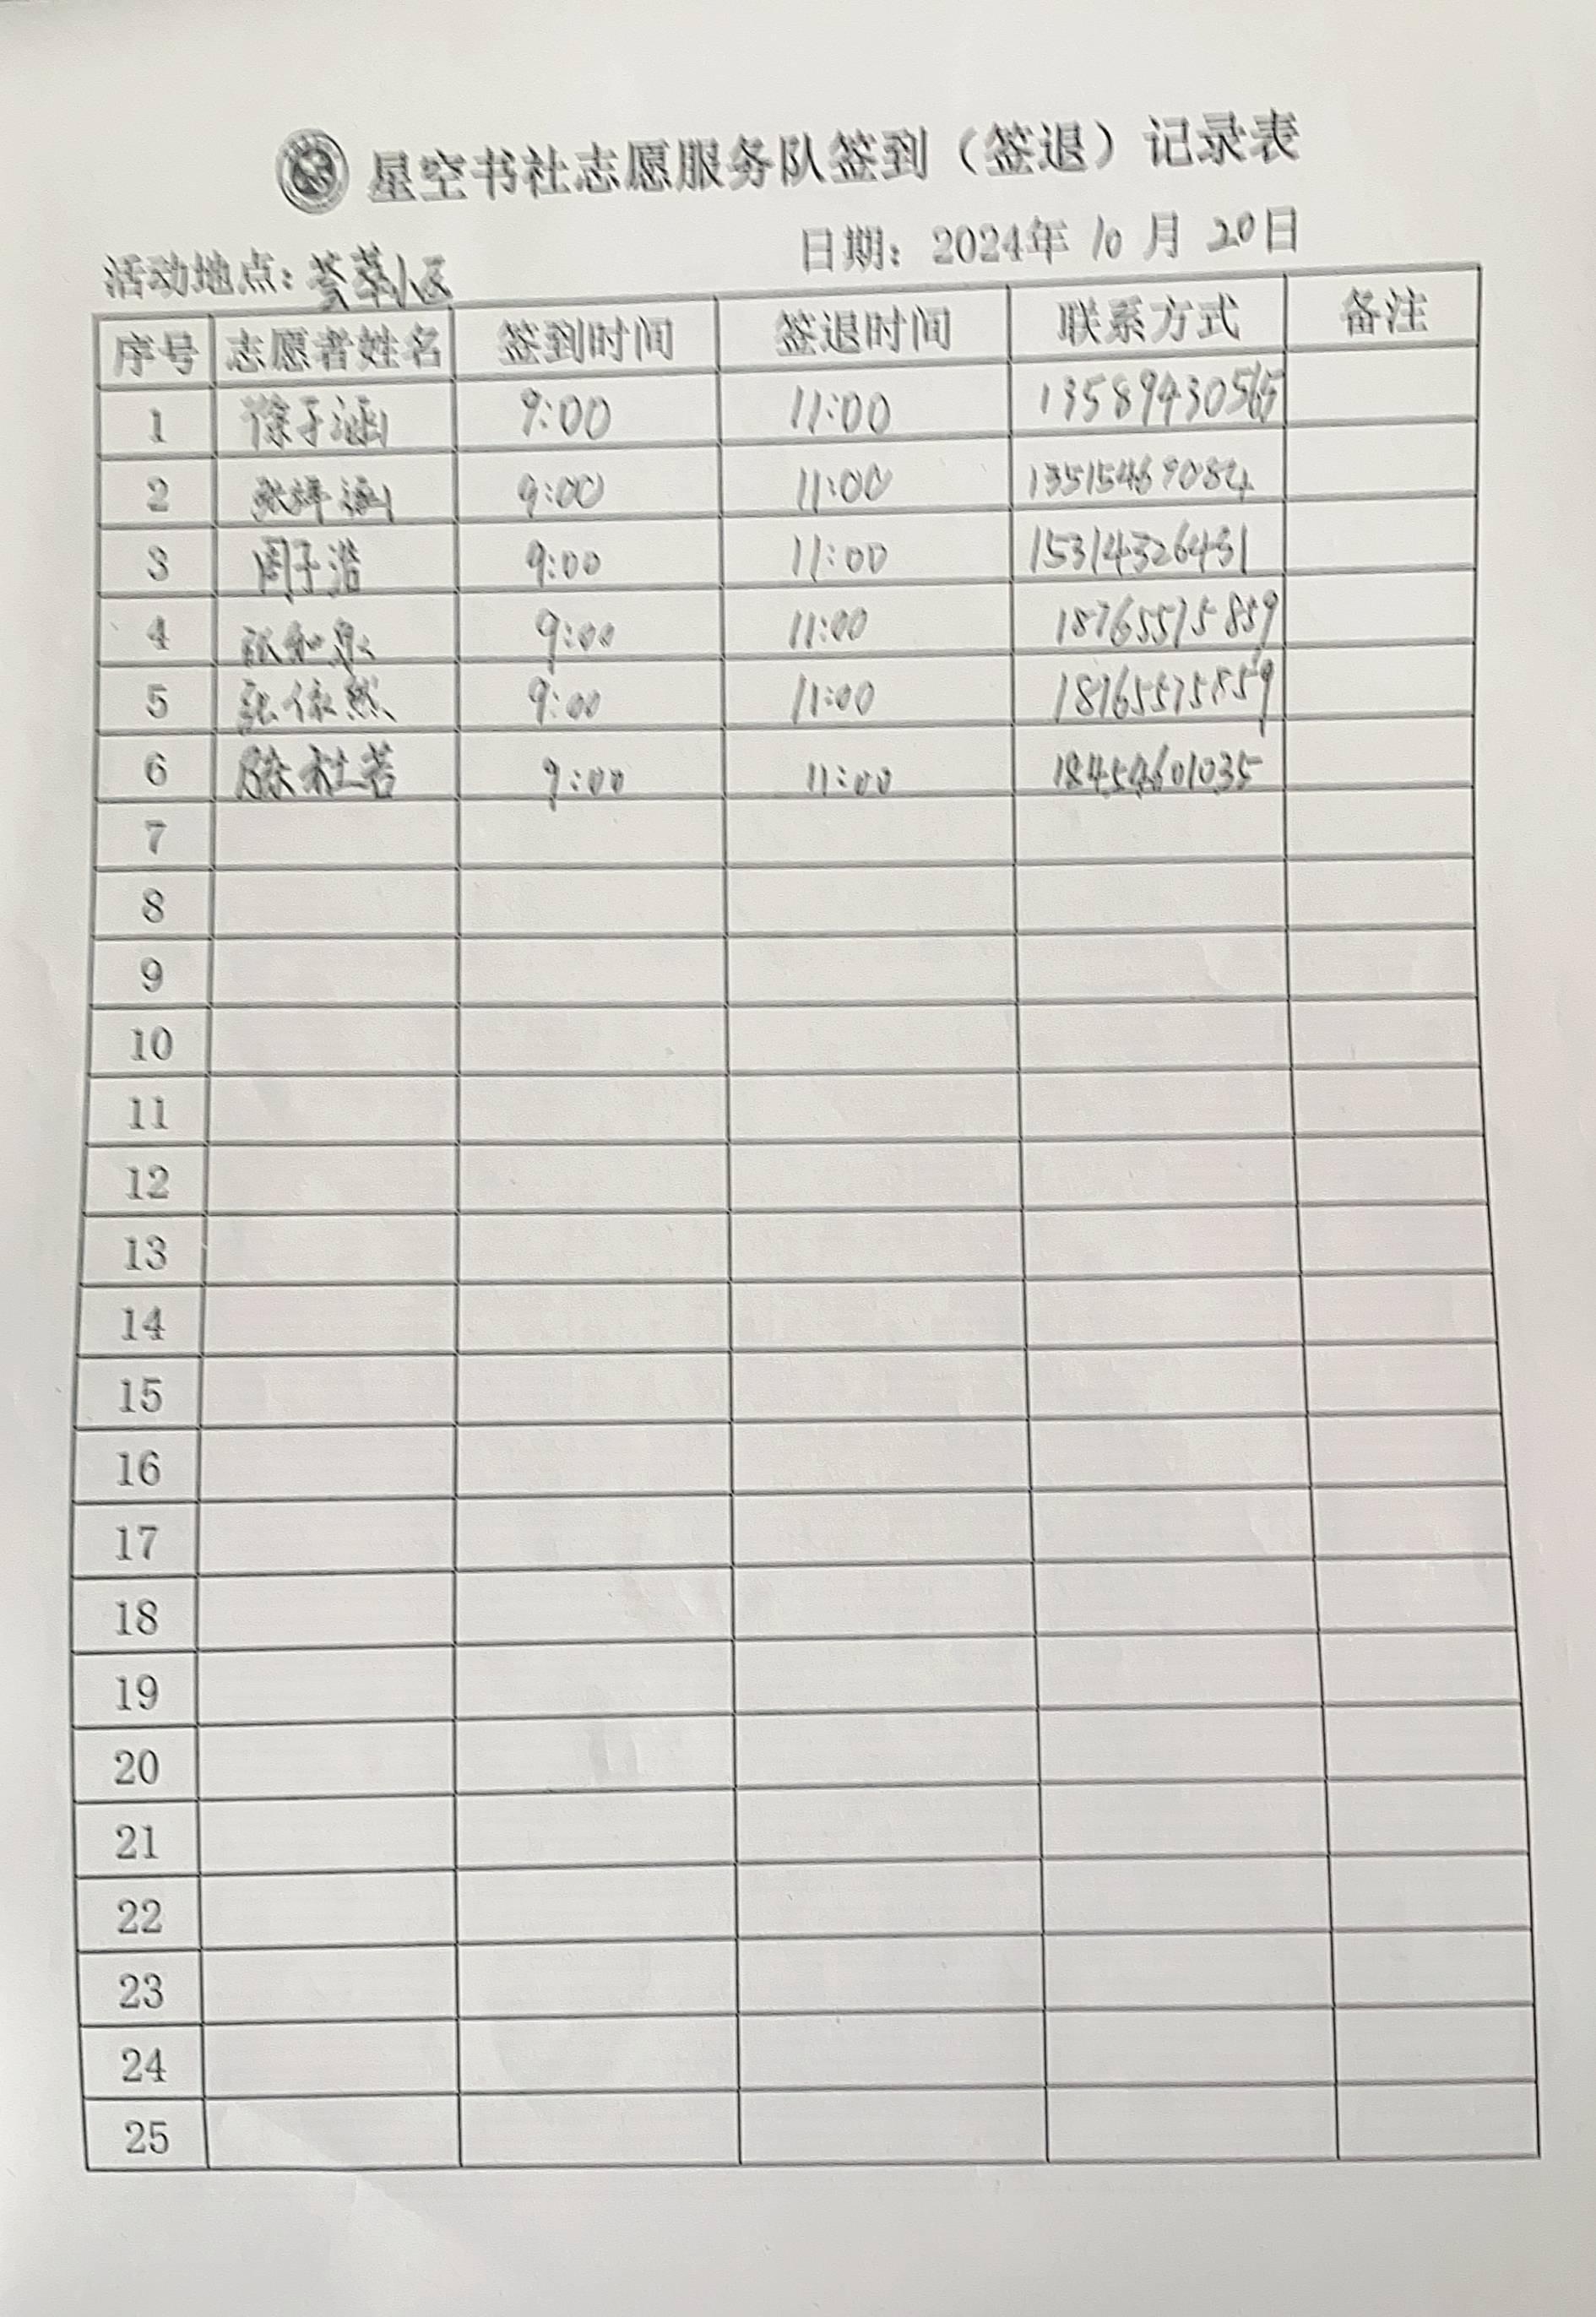 星空书社志愿服务队签到（签退）记录表
活动地点：荟萃小区 日期：2024年 10 月 20日
序号 志愿者姓名 签到时间 签退时间 联系方式 备注
1 徐子涵 9:00 11:00 13589430565
2 张梓涵 9:00 11:00 13515469084
3 周子浩 9:00 11:00 15314326431
4 9:00 11:00 18765575859
5 张依然 9:00 11:00 18765575859
6 徐杜若 9:00 11:00 18454601035
7
8
9
10
11
12
13
14
15
16
17
18
19
20
21
22
23
24
25